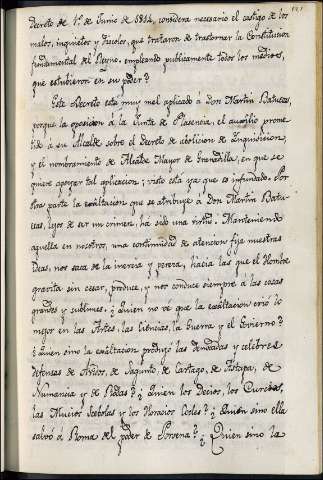 Decreto de 1º de Junio de 1814, considera necesario el castigo de los
malos, inquietos y díscolos, que trataron de trastornar la Constitucion
fundamental del Reyno. empleando publicamente todos los medios,
que estubieron en su poder?
Este Decreto esta muy mel aplicado á Don Martin Batuecas,
porque la oposicion à la Junta de Plasencia, el auxilio prome-
tido à su Alcalde sobre el decreto de abolicion de Inquisicion,
y el nombramiento de Alcalde Mayor de Granadilla, en que se
quiere apoyar tal aplicacion; visto està ya que es infundado. Por
otra parte la exâltacion que se atribuye à Don Martin Batu-
ecas, lejos de ser un crimen, há sido una virtud. Manteniendo
aquella en nosotros, una continuidad de atencion fija nuestras
ideas, nos saca de la inercia y pereza, hácia las que el Hombre
gravita sin cesar, produce, y nos conduce siempre à las cosas
grandes y sublimes. ¿Quien no vé que la exâltacion crió lo
mejor en las Artes, las Ciencias, la Guerra y el Govierno?
¿Quien sino la exâltacion produjo las denodadas y celebres
defensas de de Sagunto, de Cartago, de Astapa, de
Numancia y de Rodas? ¿Quien los Decios, los Curcios,
las Mucios Scebolas y los Horacios Cocles? ¿Quién sino ella
salvó à Roma del poder de Porsena? ¿Quien sino la